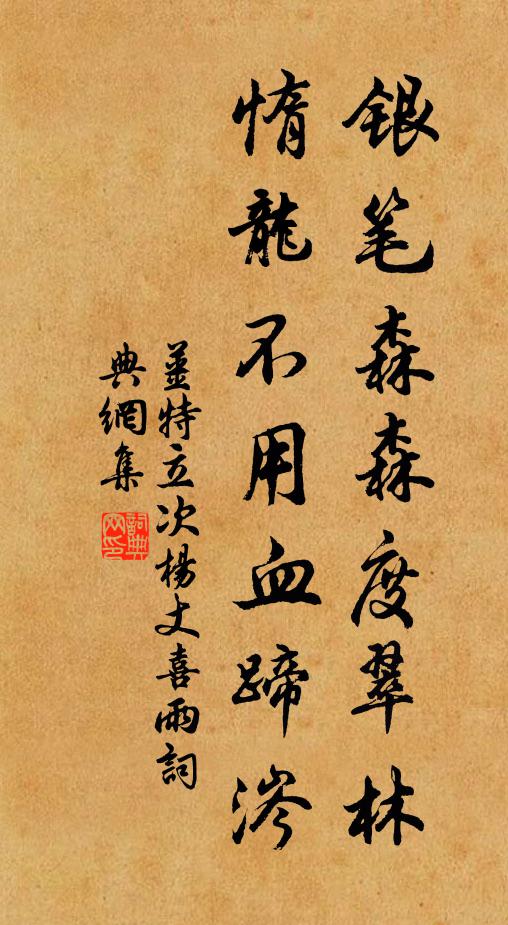 银笔森森度翠林
惰龍不用血蹄涔
姜特立次楊丈喜雨詞
典網集
詞典網印